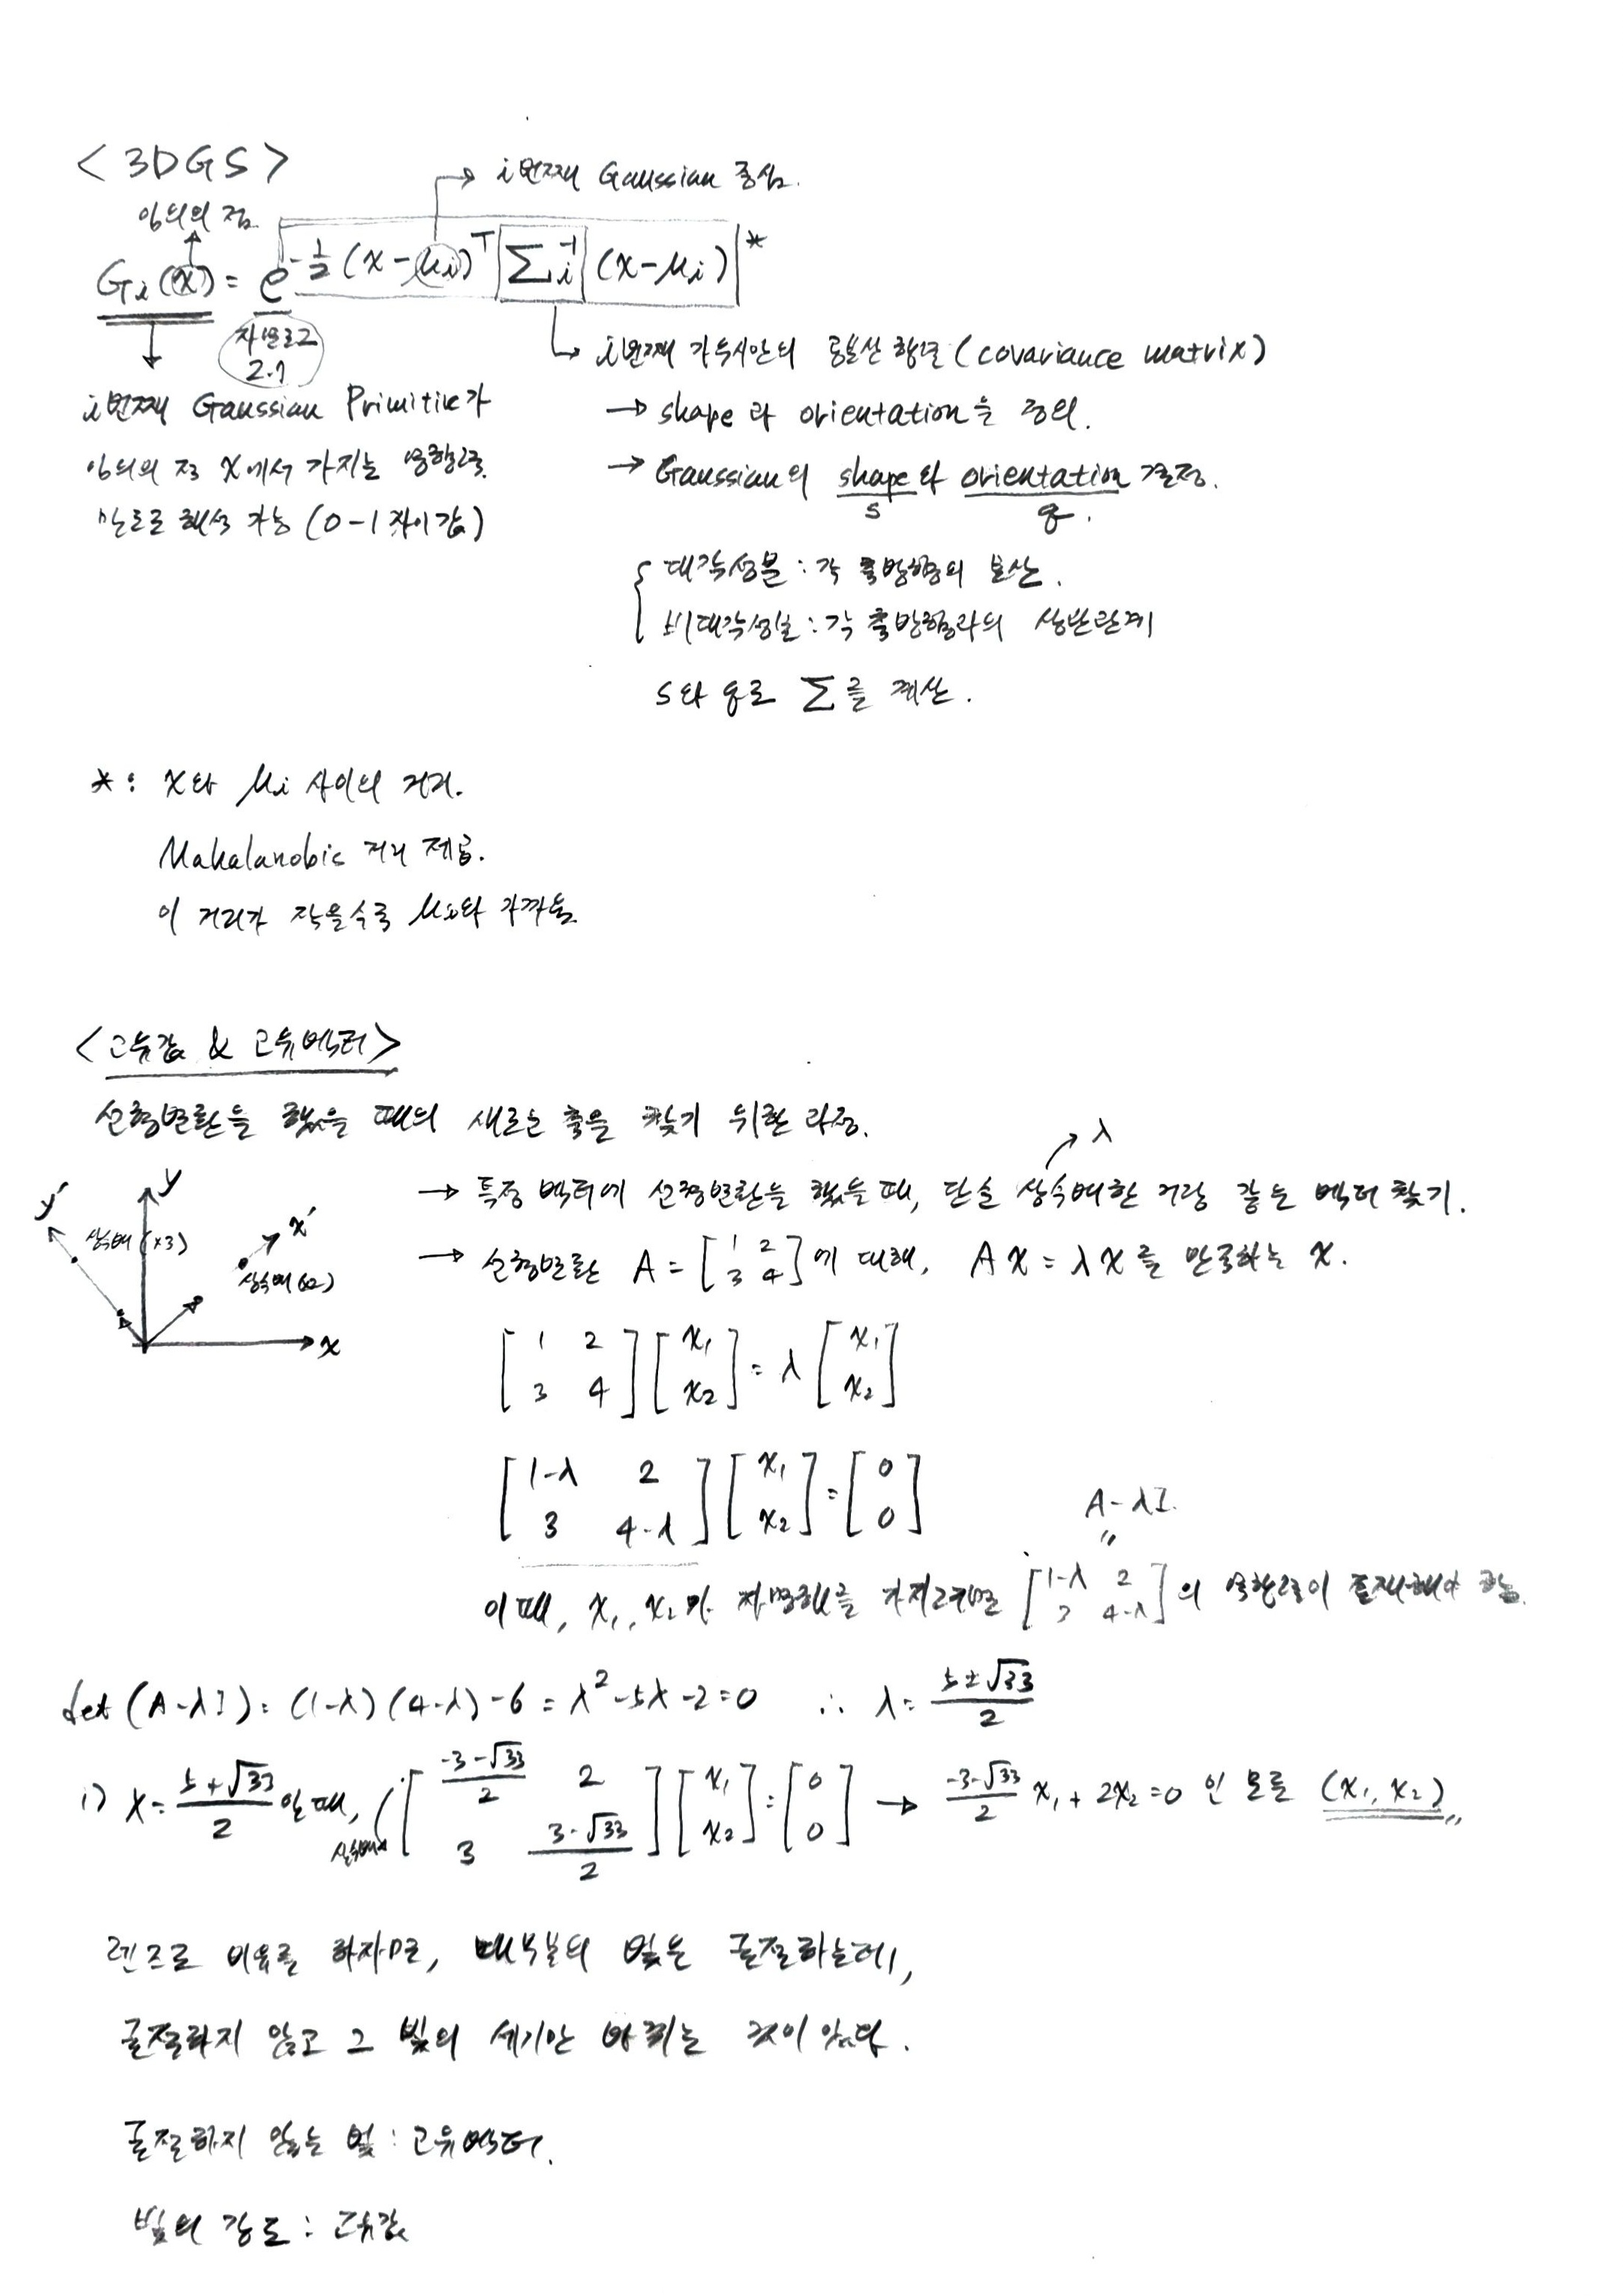 <3DGS>
i번째 Gaussian 중심.
임의의 점
Gi(x) = e^{-\frac{1}{2}(x-μi)^T Σi^{-1} (x-μi)} *
자연로그
2.7
i번째 가우시안의 공분산 행렬 (covariance matrix)
i번째 Gaussian Primitive가
임의의 점 x에서 가지는 영향력
만으로 해석 가능 (0-1 사이 값)
→ shape과 orientation을 정의.
→ Gaussian의 shape와 orientation 결정.
s q.
대각성분 : 각 축방향의 분산.
비대각성분 : 각 축방향과의 상관관계
s와 q로 Σ를 계산.
* : x와 μi 사이의 거리.
Mahalanobis 거리 제곱.
이 거리가 작을수록 μi와 가까움
<고유값 & 고유벡터>
선형변환을 했을 때의 새로운 축을 찾기 위한 과정.
λ
→ 특정 벡터에 선형변환을 했을 때, 단순 상수배한 거랑 같은 벡터 찾기.
y' y x'
상수배 (x3)
상수배(x2)
x
→ 선형변환 A = [1 2; 3 4]에 대해, Ax = λx를 만족하는 x.
[1 2; 3 4][x1; x2] = λ[x1; x2]
[1-λ 2; 3 4-λ][x1; x2] = [0; 0]
A-λI.
〃
이 때, x1, x2가 자명해를 가지려면 [1-λ 2; 3 4-λ]의 역행렬이 존재해야 함.
det(A-λI) = (1-λ)(4-λ)-6 = λ²-5λ-2=0 ∴ λ = \frac{5±√33}{2}
i) λ = \frac{5+√33}{2} 일 때, [\frac{-3-√33}{2} 2; 3 \frac{3-√33}{2}][x1; x2] = [0; 0] → \frac{-3-√33}{2}x1 + 2x2 = 0 인 모든 (x1, x2)〃
상수배
렌즈로 비유를 하자면, 대부분의 빛은 굴절하는데,
굴절하지 않고 그 빛의 세기만 바뀌는 것이 있다.
굴절하지 않는 빛 : 고유벡터.
빛의 강도 : 고유값